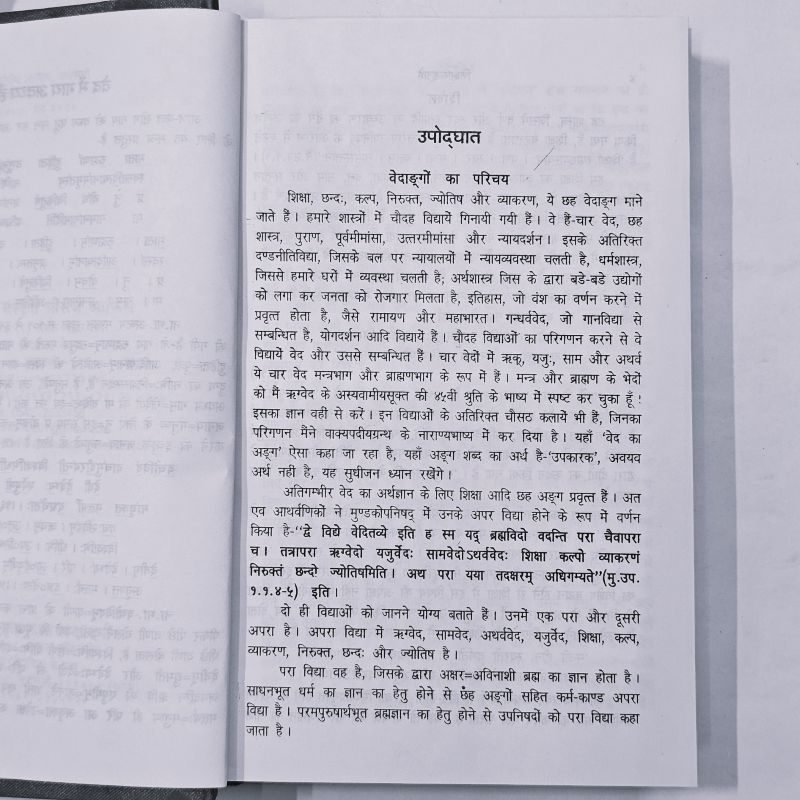 उपोद्घात
वेदाङ्गों का परिचय
शिक्षा, छन्दः, कल्प, निरुक्त, ज्योतिष और व्याकरण, ये छह वेदाङ्ग माने
जाते हैं। हमारे शास्त्रों में चौदह विद्यायें गिनायी गयी हैं। वे हैं-चार वेद, छह
शास्त्र, पुराण, पूर्वमीमांसा, उत्तरमीमांसा और न्यायदर्शन। इसके अतिरिक्त
दण्डनीतिविद्या, जिसके बल पर न्यायालयों में न्यायव्यवस्था चलती है, धर्मशास्त्र,
जिससे हमारे घरों में व्यवस्था चलती है; अर्थशास्त्र जिस के द्वारा बडे-बडे उद्योगों
को लगा कर जनता को रोजगार मिलता है, इतिहास, जो वंश का वर्णन करने में
प्रवृत्त होता है, जैसे रामायण और महाभारत। गन्धर्ववेद, जो गानविद्या से
सम्बन्धित है, योगदर्शन आदि विद्यायें हैं। चौदह विद्याओं का परिगणन करने से वे
विद्यायें वेद और उससे सम्बन्धित हैं। चार वेदों में ऋक्, यजुः, साम और अथर्व
ये चार वेद मन्त्रभाग और ब्राह्मणभाग के रूप में हैं। मन्त्र और ब्राह्मण के भेदों
को मैं ऋग्वेद के अस्यवामीयसूक्त की ४५वीं श्रुति के भाष्य में स्पष्ट कर चुका हूँ!
इसका ज्ञान वही से करें। इन विद्याओं के अतिरिक्त चौसठ कलायें भी हैं, जिनका
परिगणन मैंने वाक्यपदीयग्रन्थ के नाराण्यभाष्य में कर दिया है। यहाँ 'वेद का
अङ्ग' ऐसा कहा जा रहा है, यहाँ अङ्ग शब्द का अर्थ है-'उपकारक', अवयव
अर्थ नही है, यह सुधीजन ध्यान रखेंगे।
अतिगम्भीर वेद का अर्थज्ञान के लिए शिक्षा आदि छह अङ्ग प्रवृत्त हैं। अत
एव आथर्वणिकों ने मुण्डकोपनिषद् में उनके अपर विद्या होने के रूप में वर्णन
किया है-"द्वे विद्ये वेदितव्ये इति ह स्म यद् ब्रह्मविदो वदन्ति परा चैवापरा
च। तत्रापरा ऋग्वेदो यजुर्वेदः सामवेदोऽथर्ववेदः शिक्षा कल्पो व्याकरणं
निरुक्तं छन्दो ज्योतिषमिति। अथ परा यया तदक्षरम् अधिगम्यते"(मु.उप.
१.१.४-५) इति।
दो ही विद्याओं को जानने योग्य बताते हैं। उनमें एक परा और दूसरी
अपरा है। अपरा विद्या में ऋग्वेद, सामवेद, अथर्ववेद, यजुर्वेद, शिक्षा, कल्प,
व्याकरण, निरुक्त, छन्दः और ज्योतिष है।
परा विद्या वह है, जिसके द्वारा अक्षर=अविनाशी ब्रह्म का ज्ञान होता है।
साधनभूत धर्म का ज्ञान का हेतु होने से छह अङ्गों सहित कर्म-काण्ड अपरा
विद्या है। परमपुरुषार्थभूत ब्रह्मज्ञान का हेतु होने से उपनिषदों को परा विद्या कहा
जाता है।